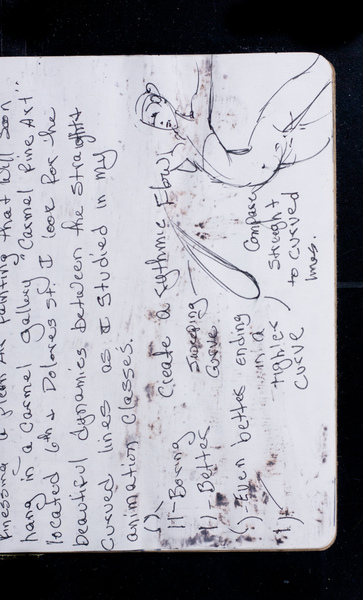 a plein air painting that will soon
hang in a Carmel gallery "Carmel Fine Art"
located 6th & Dolores st. I look for the
beautiful dynamics between the straight
curved lines as I studied in my
animation classes.
Create a rythmic Flow
Boring
Better
Sweeping
Curve
Even better ending
in a
tighter
curve
Compare
Straight
to curved
lines.